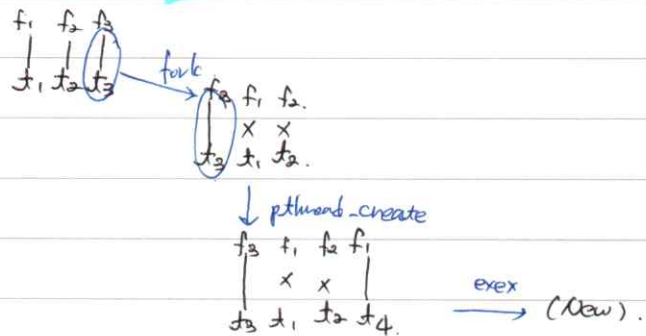 f₁ f₂ f₃
t₁ t₂ t₃
fork
f₃ f₁ f₂.
x x
t₃ t₁ t₂.
pthread_create
f₃ f₁ f₂ f₁
x x
t₃ t₁ t₂ t₄.
exex
(New).